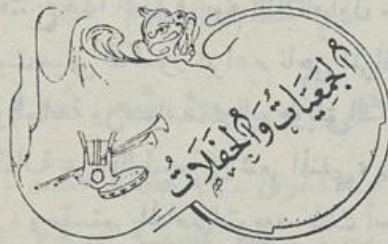 الجَمْعِيَّات وَالْحَفَلَاتُ